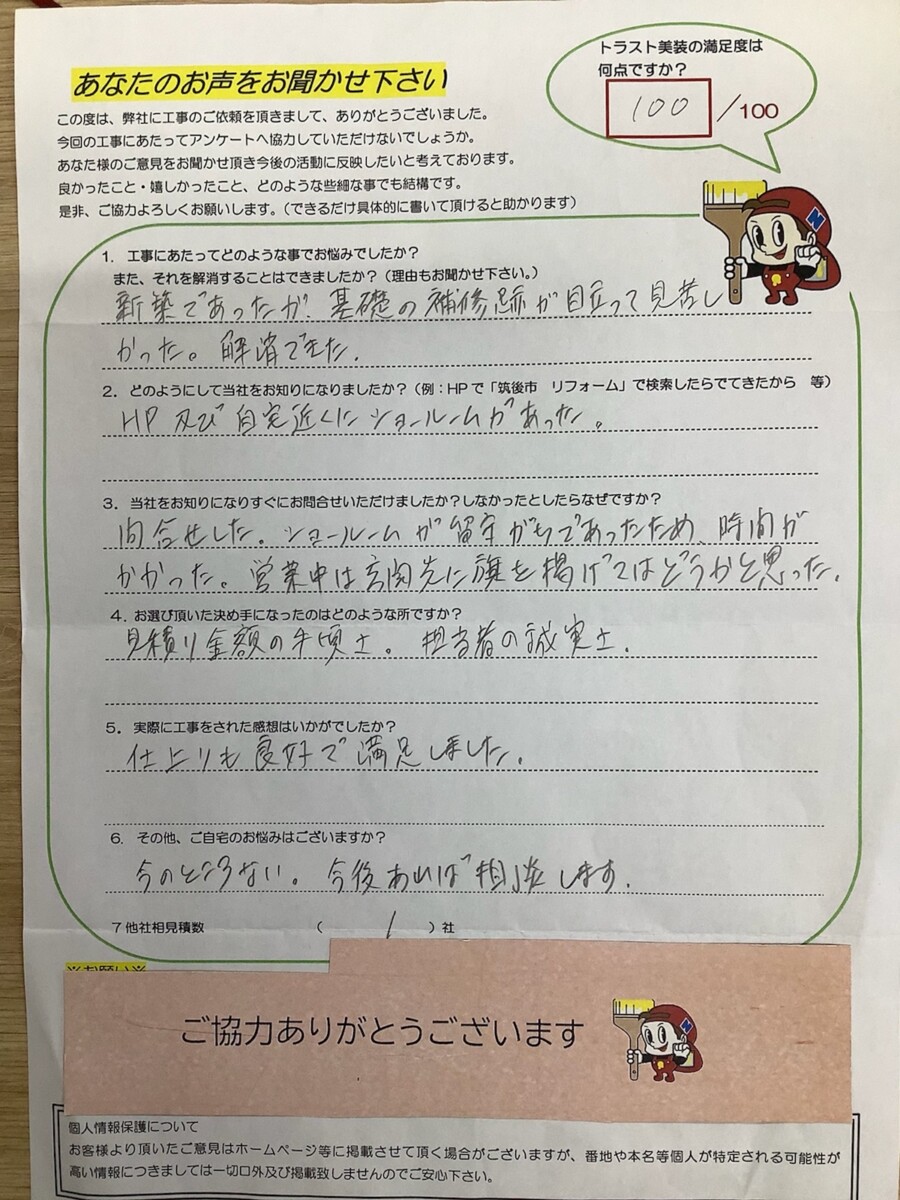 あなたのお声をお聞かせ下さい
トラスト美装の満足度は
何点ですか？
100／100
この度は、弊社に工事のご依頼を頂きまして、ありがとうございました。
今回の工事にあたってアンケートへ協力していただけないでしょうか。
あなた様のご意見をお聞かせ頂き今後の活動に反映したいと考えております。
良かったこと・嬉しかったこと、どのような些細な事でも結構です。
是非、ご協力よろしくお願いします。（できるだけ具体的に書いて頂けると助かります）
N
1. 工事にあたってどのような事でお悩みでしたか？
また、それを解消することはできましたか？（理由もお聞かせ下さい。）
新築であったが、基礎の補修跡が目立って見苦し
かった。解消できた.
2. どのようにして当社をお知りになりましたか？（例：HPで「筑後市　リフォーム」で検索したらでてきたから　等）
HP 及び自宅近くにショールームがあった。
3. 当社をお知りになりすぐにお問合せいただけましたか？しなかったとしたらなぜですか？
問合せした。ショールームが留守がちであったため、時間が
かかった。営業中は玄関先に旗を掲げてはどうかと思った.
4. お選び頂いた決め手になったのはどのような所ですか？
見積り金額の手頃さ。担当者の誠実さ.
5. 実際に工事をされた感想はいかがでしたか？
仕上りも良好で満足しました.
6. その他、ご自宅のお悩みはございますか？
今のところない。今後あれば相談します.
7 他社相見積数　（　1　）社
※お願い※
ご協力ありがとうございます
N
個人情報保護について
お客様より頂いたご意見はホームページ等に掲載させて頂く場合がございますが、番地や本名等個人が特定される可能性が
高い情報につきましては一切口外及び掲載致しませんのでご安心下さい。